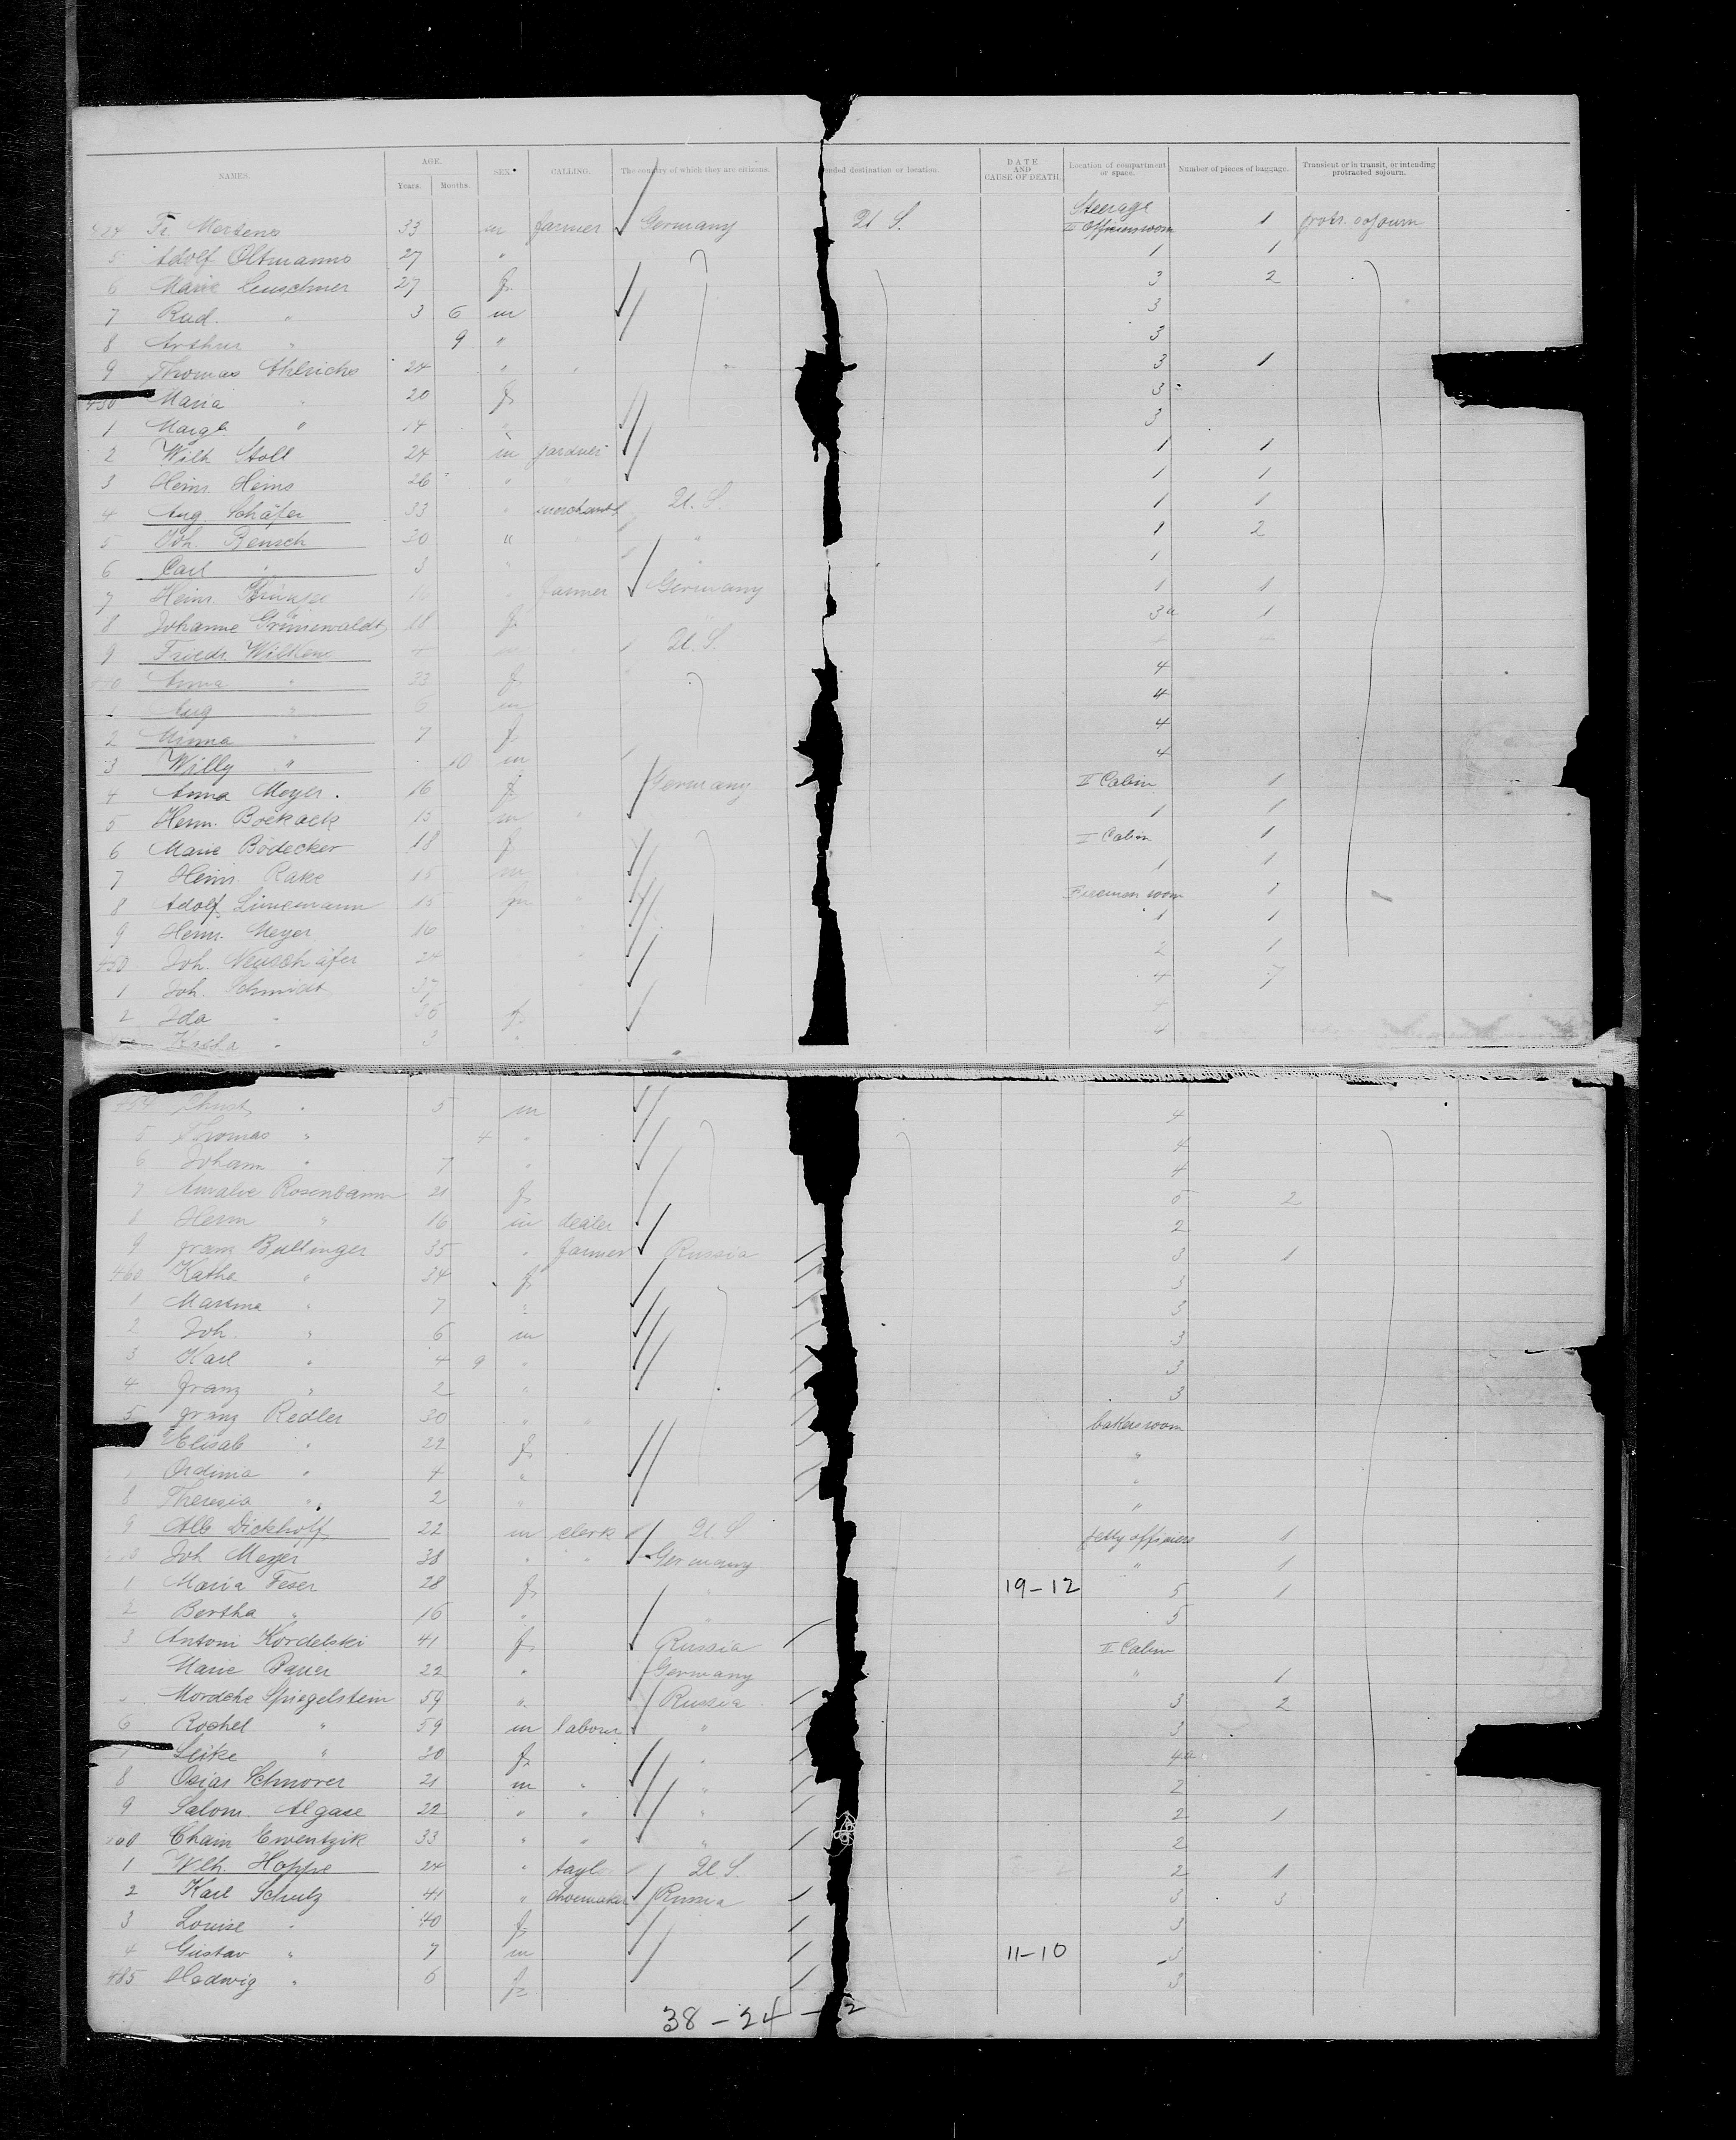 NAMES. AGE. Years. Months. SEX. CALLING. The country of which they are citizens. nded destination or location. DATE AND CAUSE OF DEATH. Location of compartment or space. Number of pieces of baggage. Transient or in transit, or intending protracted sojourn.
Steerage
424 Fr. Mertens 33 m farmer Germany U. S. II Officiersroom 1 protr. sojourn
5 Adolf Oltmanns 27 " 1 1
6 Marie Leuschner 27 f. 3 2
7 Rud. " 3 6 m 3
8 Arthur " 9 " 3
9 Thomas Ahlrichs 24 " " " 3 1
430 Maria " 20 f 3
1 Margt. " 14 " 3
2 Wilh Stoll 24 m gardner 1 1
3 Heinr. Heins 26 " " 1 1
4 Aug. Schäfer 33 " merchant U. S. 1 1
5 Joh. Rensch 30 " " 1 2
6 Carl " 3 " " 1
7 Heinr. 16 " farmer Germany 1 1
8 Johanne Grünewaldt 18 f. 3a 1
9 Friedr. Wilkens m U. S.
Anna " 33 f 4
1 Aug " 6 m 4
2 Minna " 7 f 4
3 Willy " 10 m 4
4 Anna Meyer. 16 f Germany II Cabin 1
5 Herm. Bockack 15 m " 1 1
6 Marie Bödecker 18 f I Cabin 1
7 Heinr. Rake 15 m 1 1
8 Adolf Linnemann 15 m " Firemen room 1
9 Herm. Meyer 16 1 1
450 Joh. Neuschäfer 24 " 2 1
1 Joh. Schmidt 37 4 7
2 Ida " 36 f.
" 3 "
454 " 5 m 4
5 Thomas " 4 " 4
6 Johann " 7 " 4
7 Amalie Rosenbaum 21 f 5 2
8 Herm " 16 m dealer 2
9 Franz Bullinger 35 " farmer Russia 3 1
460 Katha " 34 f 3
1 Marima " 7 " 3
2 Joh. " 6 m 3
3 Karl " 4 9 " 3
4 Franz " 2 " 3
5 Franz Redler 30 " " bakers room
Elisab " 29 f "
Ordinia " 4 " "
8 Theresia " 2 " "
9 Alb Dickhoff 22 m clerk U. S petty officiers 1
Joh Meyer 38 " " Germany " 1
1 Maria Feser 28 f " 19-12 5 1
2 Bertha " 16 " " 5
3 Antoni Kordelski 41 f Russia II Cabin
Marie Bauer 22 " Germany " 1
Mordche Spiegelstein 59 " Russia 3 2
6 Rochel " 59 m labour " 3
7 Leike " 20 f " 4a
8 Osias Schnorer 21 m " " 2
9 Salom. Algase 22 " " " 2 1
Chaim Ewentzik 33 " " " 2
1 Wlh. Hoppe 24 " taylor U. S. 2 1
2 Karl Schulz 41 " shoemaker Russia 3 3
3 Louise " 40 f 3
4 Gustav " 7 m 11-10 3
485 Hedwig " 6 f 3
38-24-2